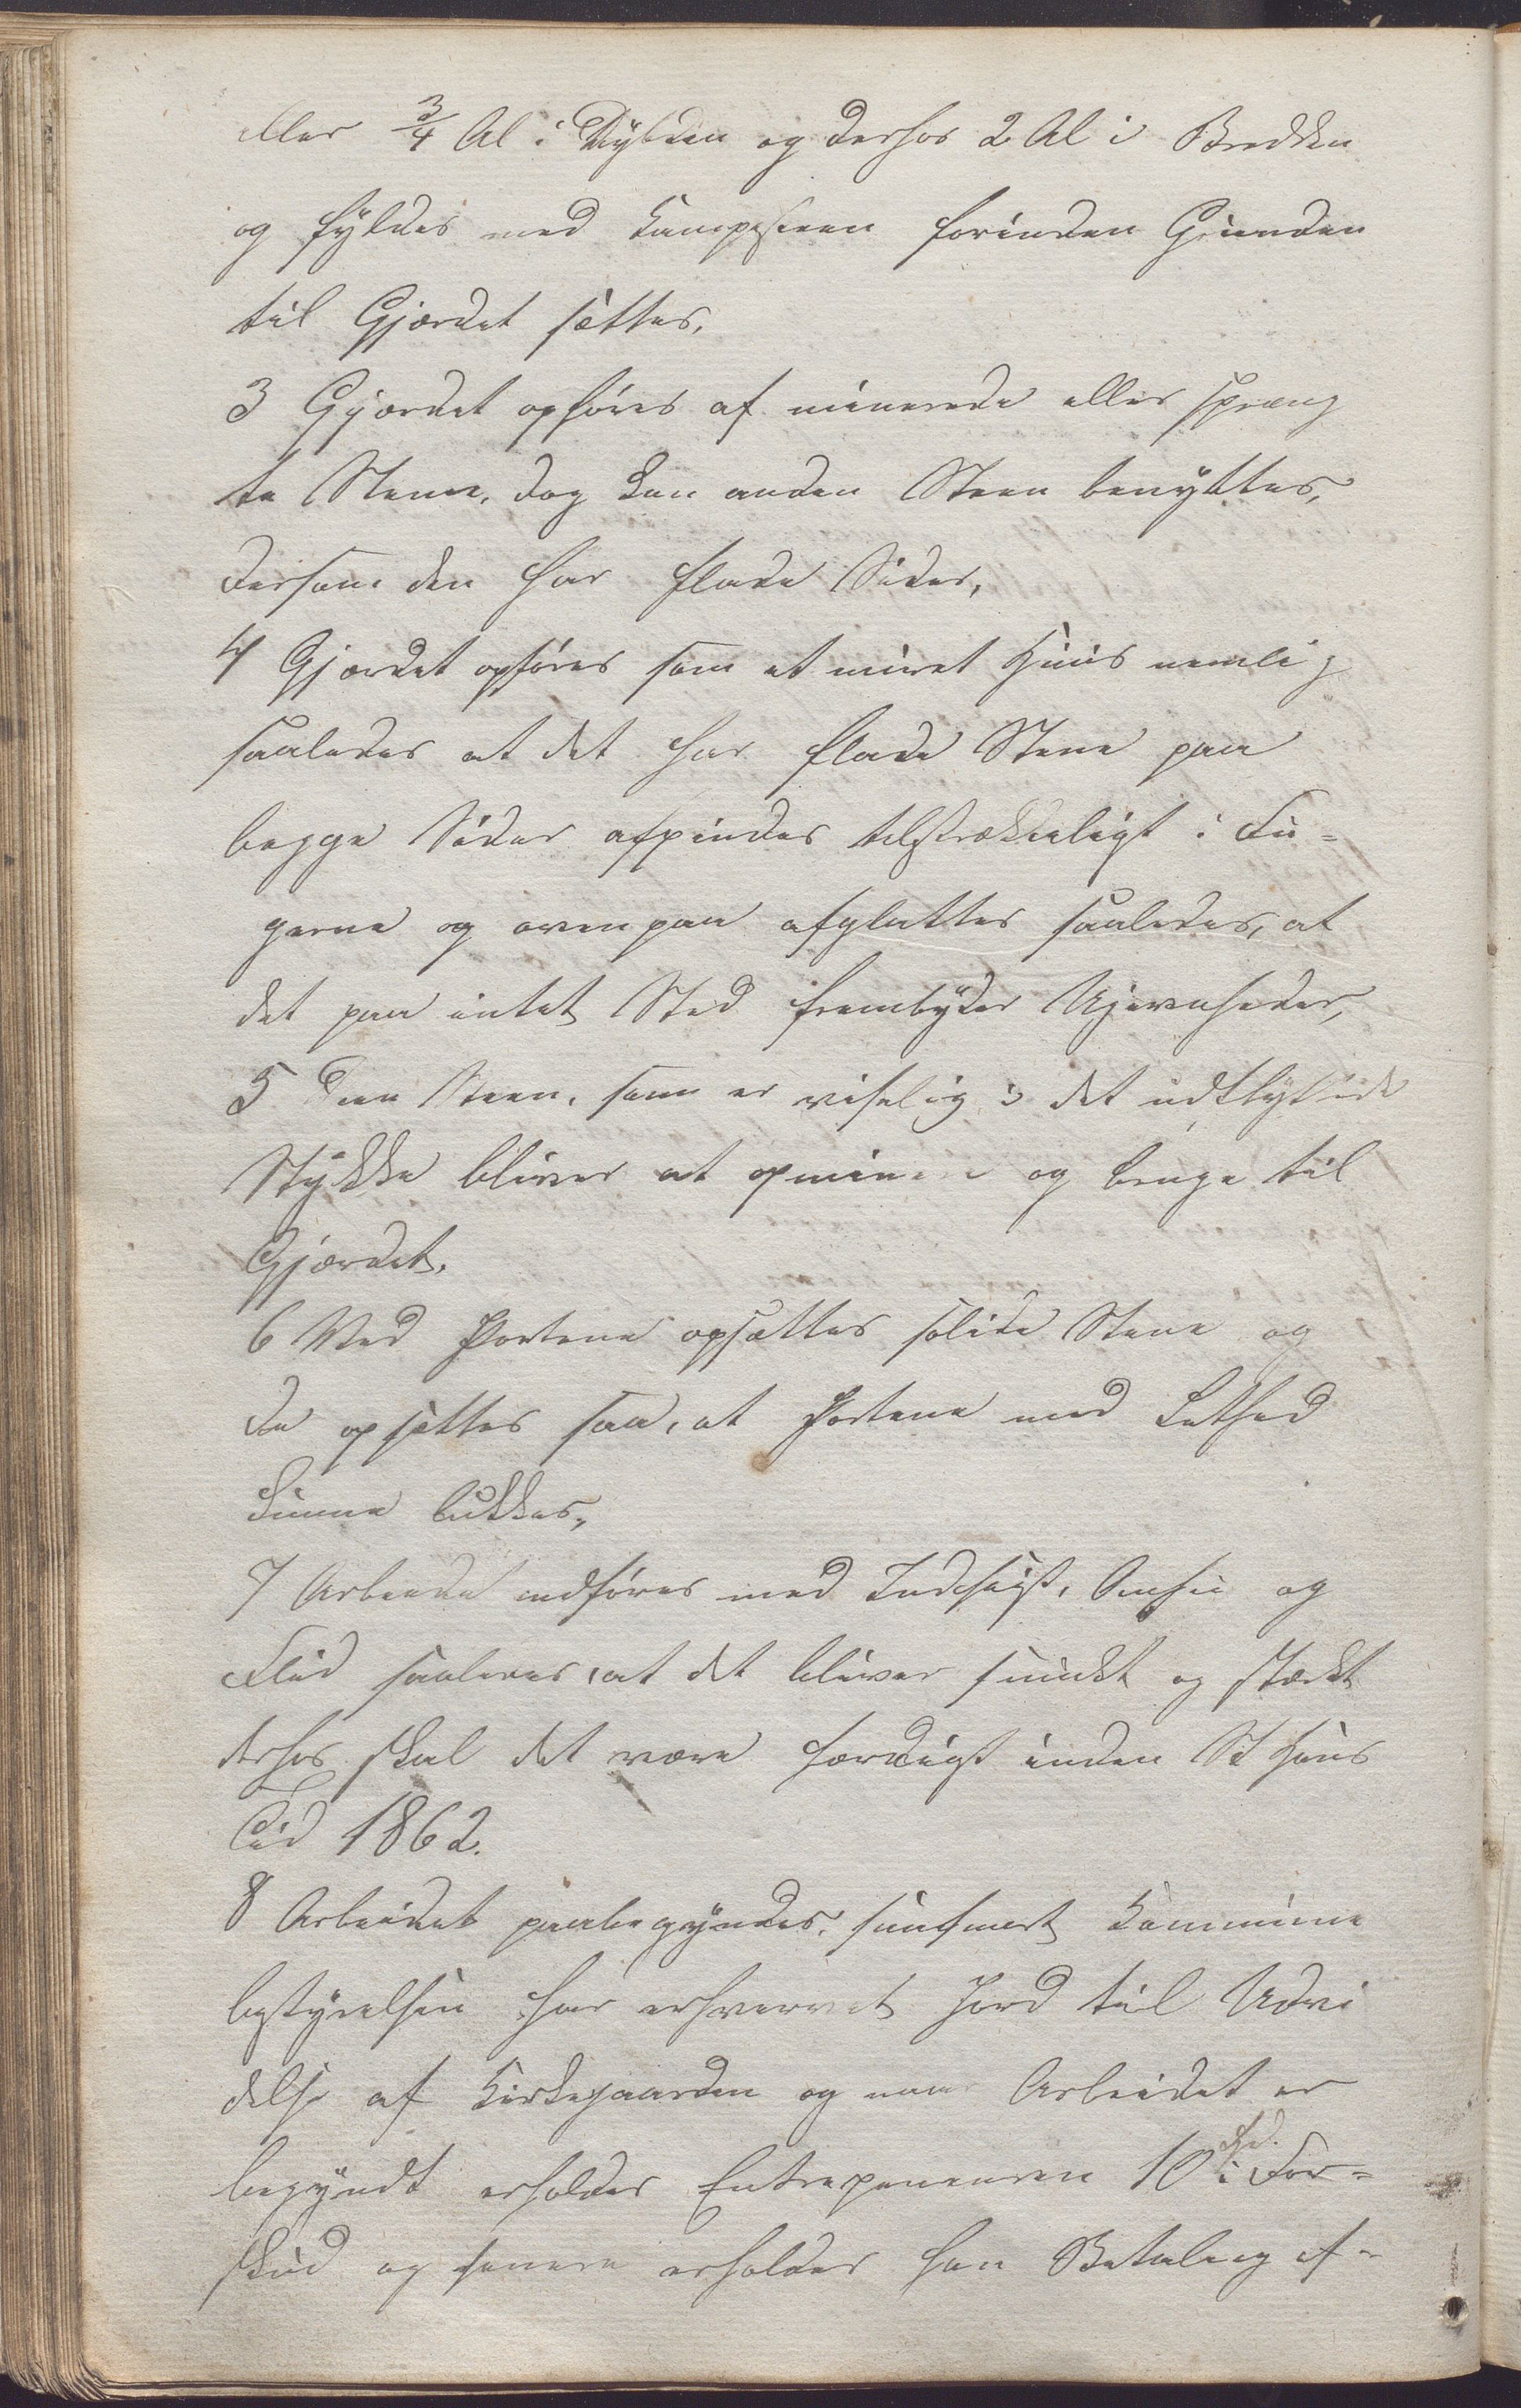 eller 3/4 Al i Dybden og derhos 2 Al i Bredden
og fyldes med Kampesteen forinden Grunden
til Gjærdet sættes.
3 Gjærdet opføres af minerede eller spræng
te Stene, dog kan anden Steen benyttes,
dersom den har flade Sider,
4 Gjærdet opføres som et muret Huus nemlig
saaledes at det har flade Stene paa
begge Sider afpindes tilstrækkeligt i Fu-
gerne og ovenpaa afglattes saaledes, at
det paa intet Sted frembyder Ujevnheder,
5 Den Steen, som er i det udflyttede
Stykke bliver at opminere og bruge til
Gjærdet.
6 Ved Portene opsættes solide Stene og
de opsættes saa, at Portene med Lethed
kunne lukkes,
7 Arbeidet udføres med Indsigt, Omhu og
Flid saaledes, at det bliver smukt og stærkt
derhos skal det være færdigt inden St Hans
Tid 1862.
8 Arbeidet paabegyndes, snarest Kommune
bestyrelsen har erhvervet Jord til Udvi
delse af Kirkegaarden og naar Arbeidet er
begyndt erholder Entrepeneuren 10 rd. i For-
skud og senere erholder han Betaling ef-